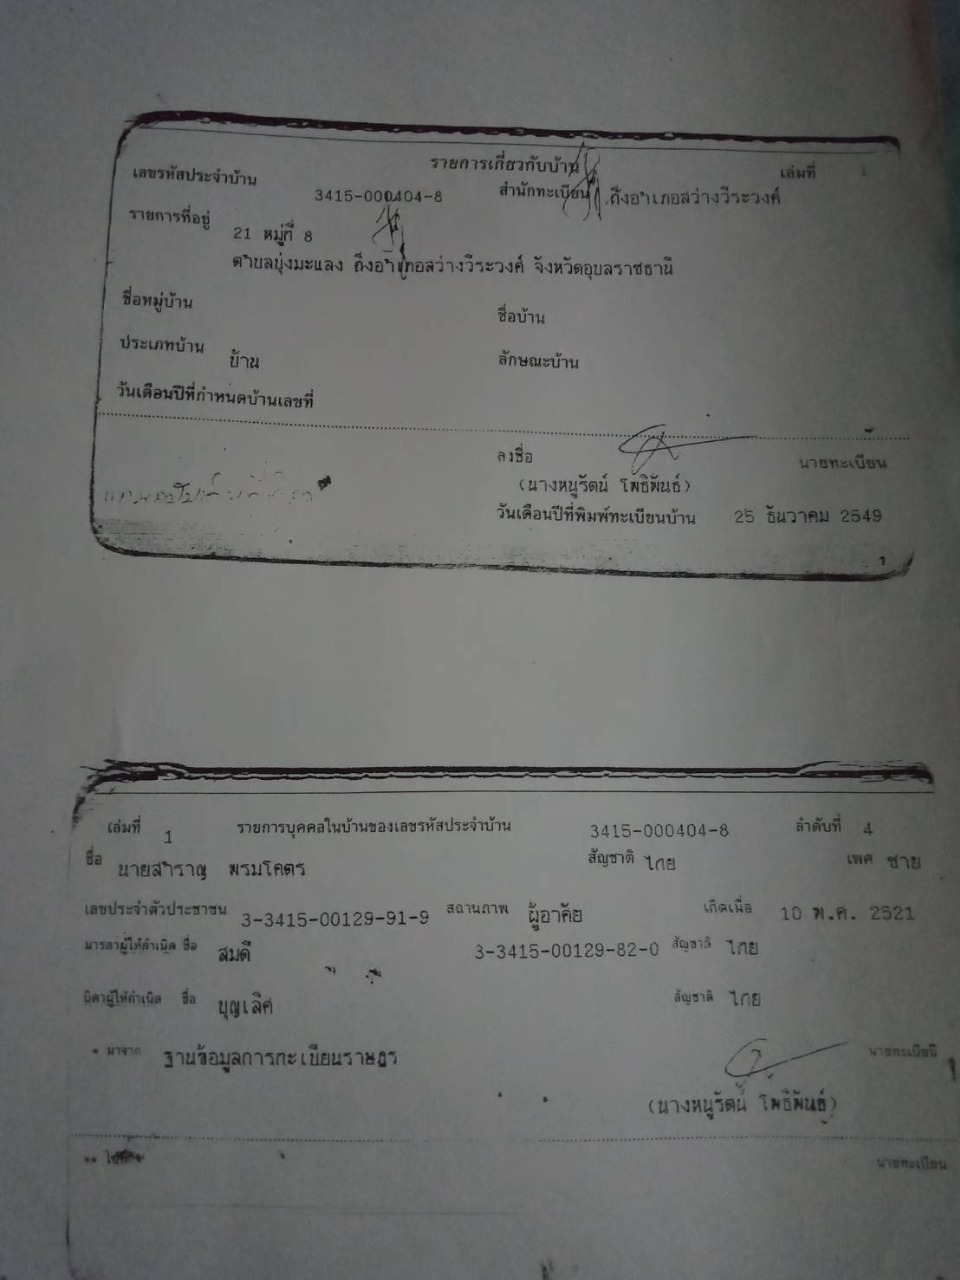 รายการเกี่ยวกับบ้าน เล่มที่ 1
เลขรหัสประจำบ้าน 3415-000404-8 สำนักทะเบียน กิ่งอำเภอสว่างวีระวงศ์
รายการที่อยู่ 21 หมู่ที่ 8
ตำบลบุ่งมะแลง กิ่งอำเภอสว่างวีระวงศ์ จังหวัดอุบลราชธานี
ชื่อหมู่บ้าน ชื่อบ้าน
ประเภทบ้าน บ้าน ลักษณะบ้าน
วันเดือนปีที่กำหนดบ้านเลขที่
ลงชื่อ นายทะเบียน
(นางหนูรัตน์ โพธิพันธ์)
วันเดือนปีที่พิมพ์ทะเบียนบ้าน 25 ธันวาคม 2549
1
เล่มที่ 1 รายการบุคคลในบ้านของเลขรหัสประจำบ้าน 3415-000404-8 ลำดับที่ 4
ชื่อ นายสำราญ พรมโคตร สัญชาติ ไทย เพศ ชาย
เลขประจำตัวประชาชน 3-3415-00129-91-9 สถานภาพ ผู้อาศัย เกิดเมื่อ 10 พ.ค. 2521
มารดาผู้ให้กำเนิด ชื่อ สมดี 3-3415-00129-82-0 สัญชาติ ไทย
บิดาผู้ให้กำเนิด ชื่อ บุญเลิศ สัญชาติ ไทย
* มาจาก ฐานข้อมูลการทะเบียนราษฎร นายทะเบียน
(นางหนูรัตน์ โพธิพันธ์)
** ไปที่ นายทะเบียน